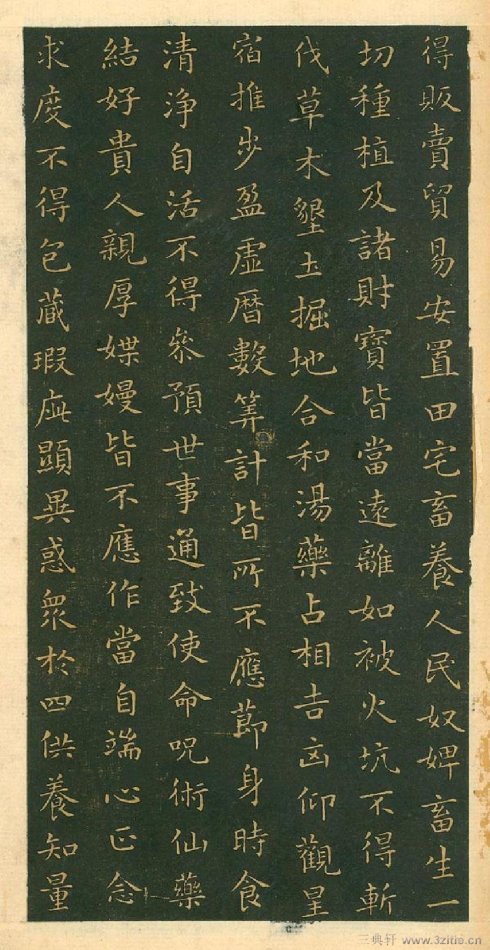 得販賣貿易安置田宅畜養人民奴婢畜生一
切種植及諸財寶皆當遠離如被火坑不得斬
伐草木墾土掘地合和湯藥占相吉凶仰觀星
宿推步盈虛曆數筭計皆所不應節身時食
清淨自活不得參預世事通致使命呪術仙藥
結好貴人親厚媟嫚皆不應作當自端心正念
求度不得包藏瑕疵顯異惑衆於四供養知量
三典轩 www.3zitie.cn